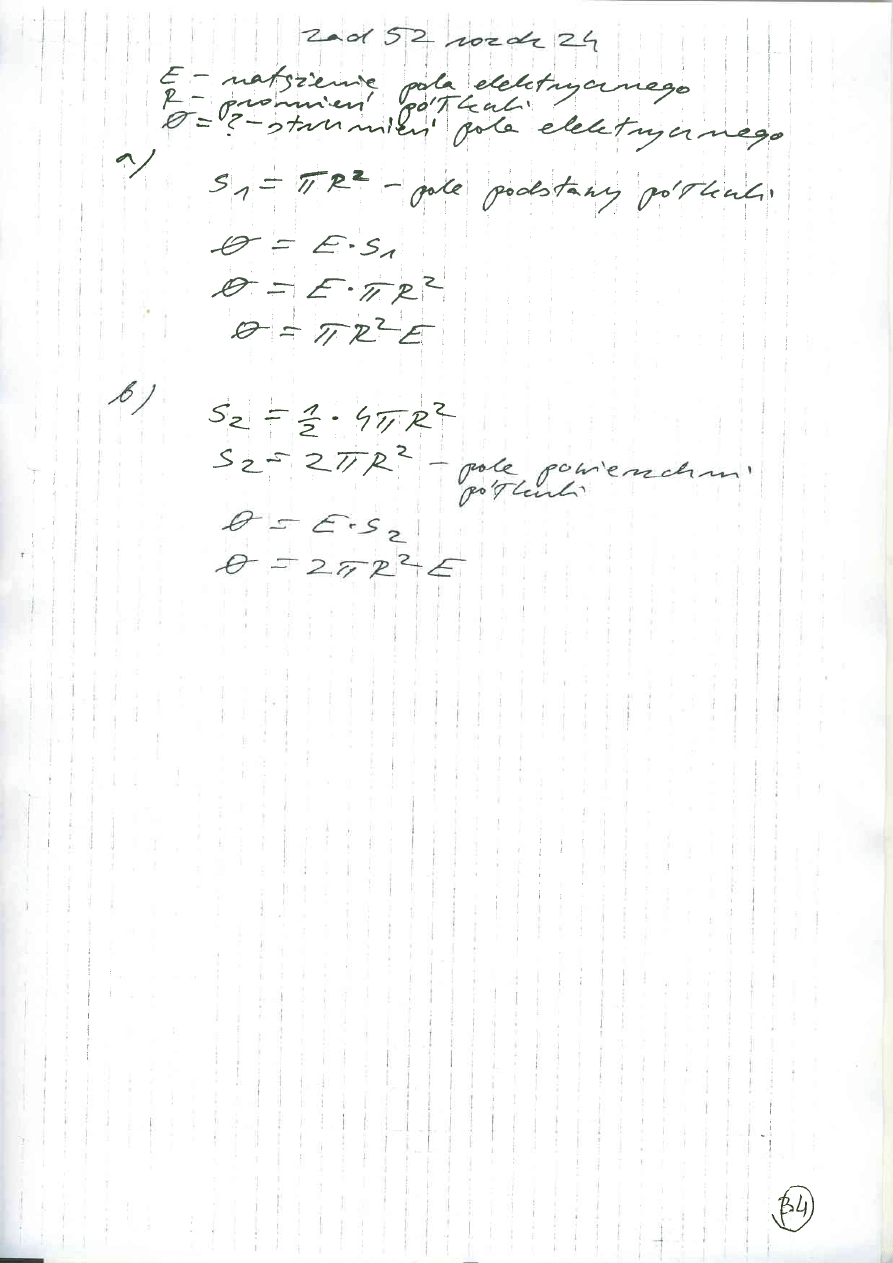 zad 52 rozdz 24
E - natężenie pola elektrycznego
R - promień półkuli
Φ = ? - strumień pola elektrycznego
a)
S₁ = πR² - pole podstawy półkuli
Φ = E · S₁
Φ = E · πR²
Φ = πR²E
b)
S₂ = ½ · 4πR²
S₂ = 2πR² - pole powierzchni
półkuli
Φ = E · S₂
Φ = 2πR²E
34